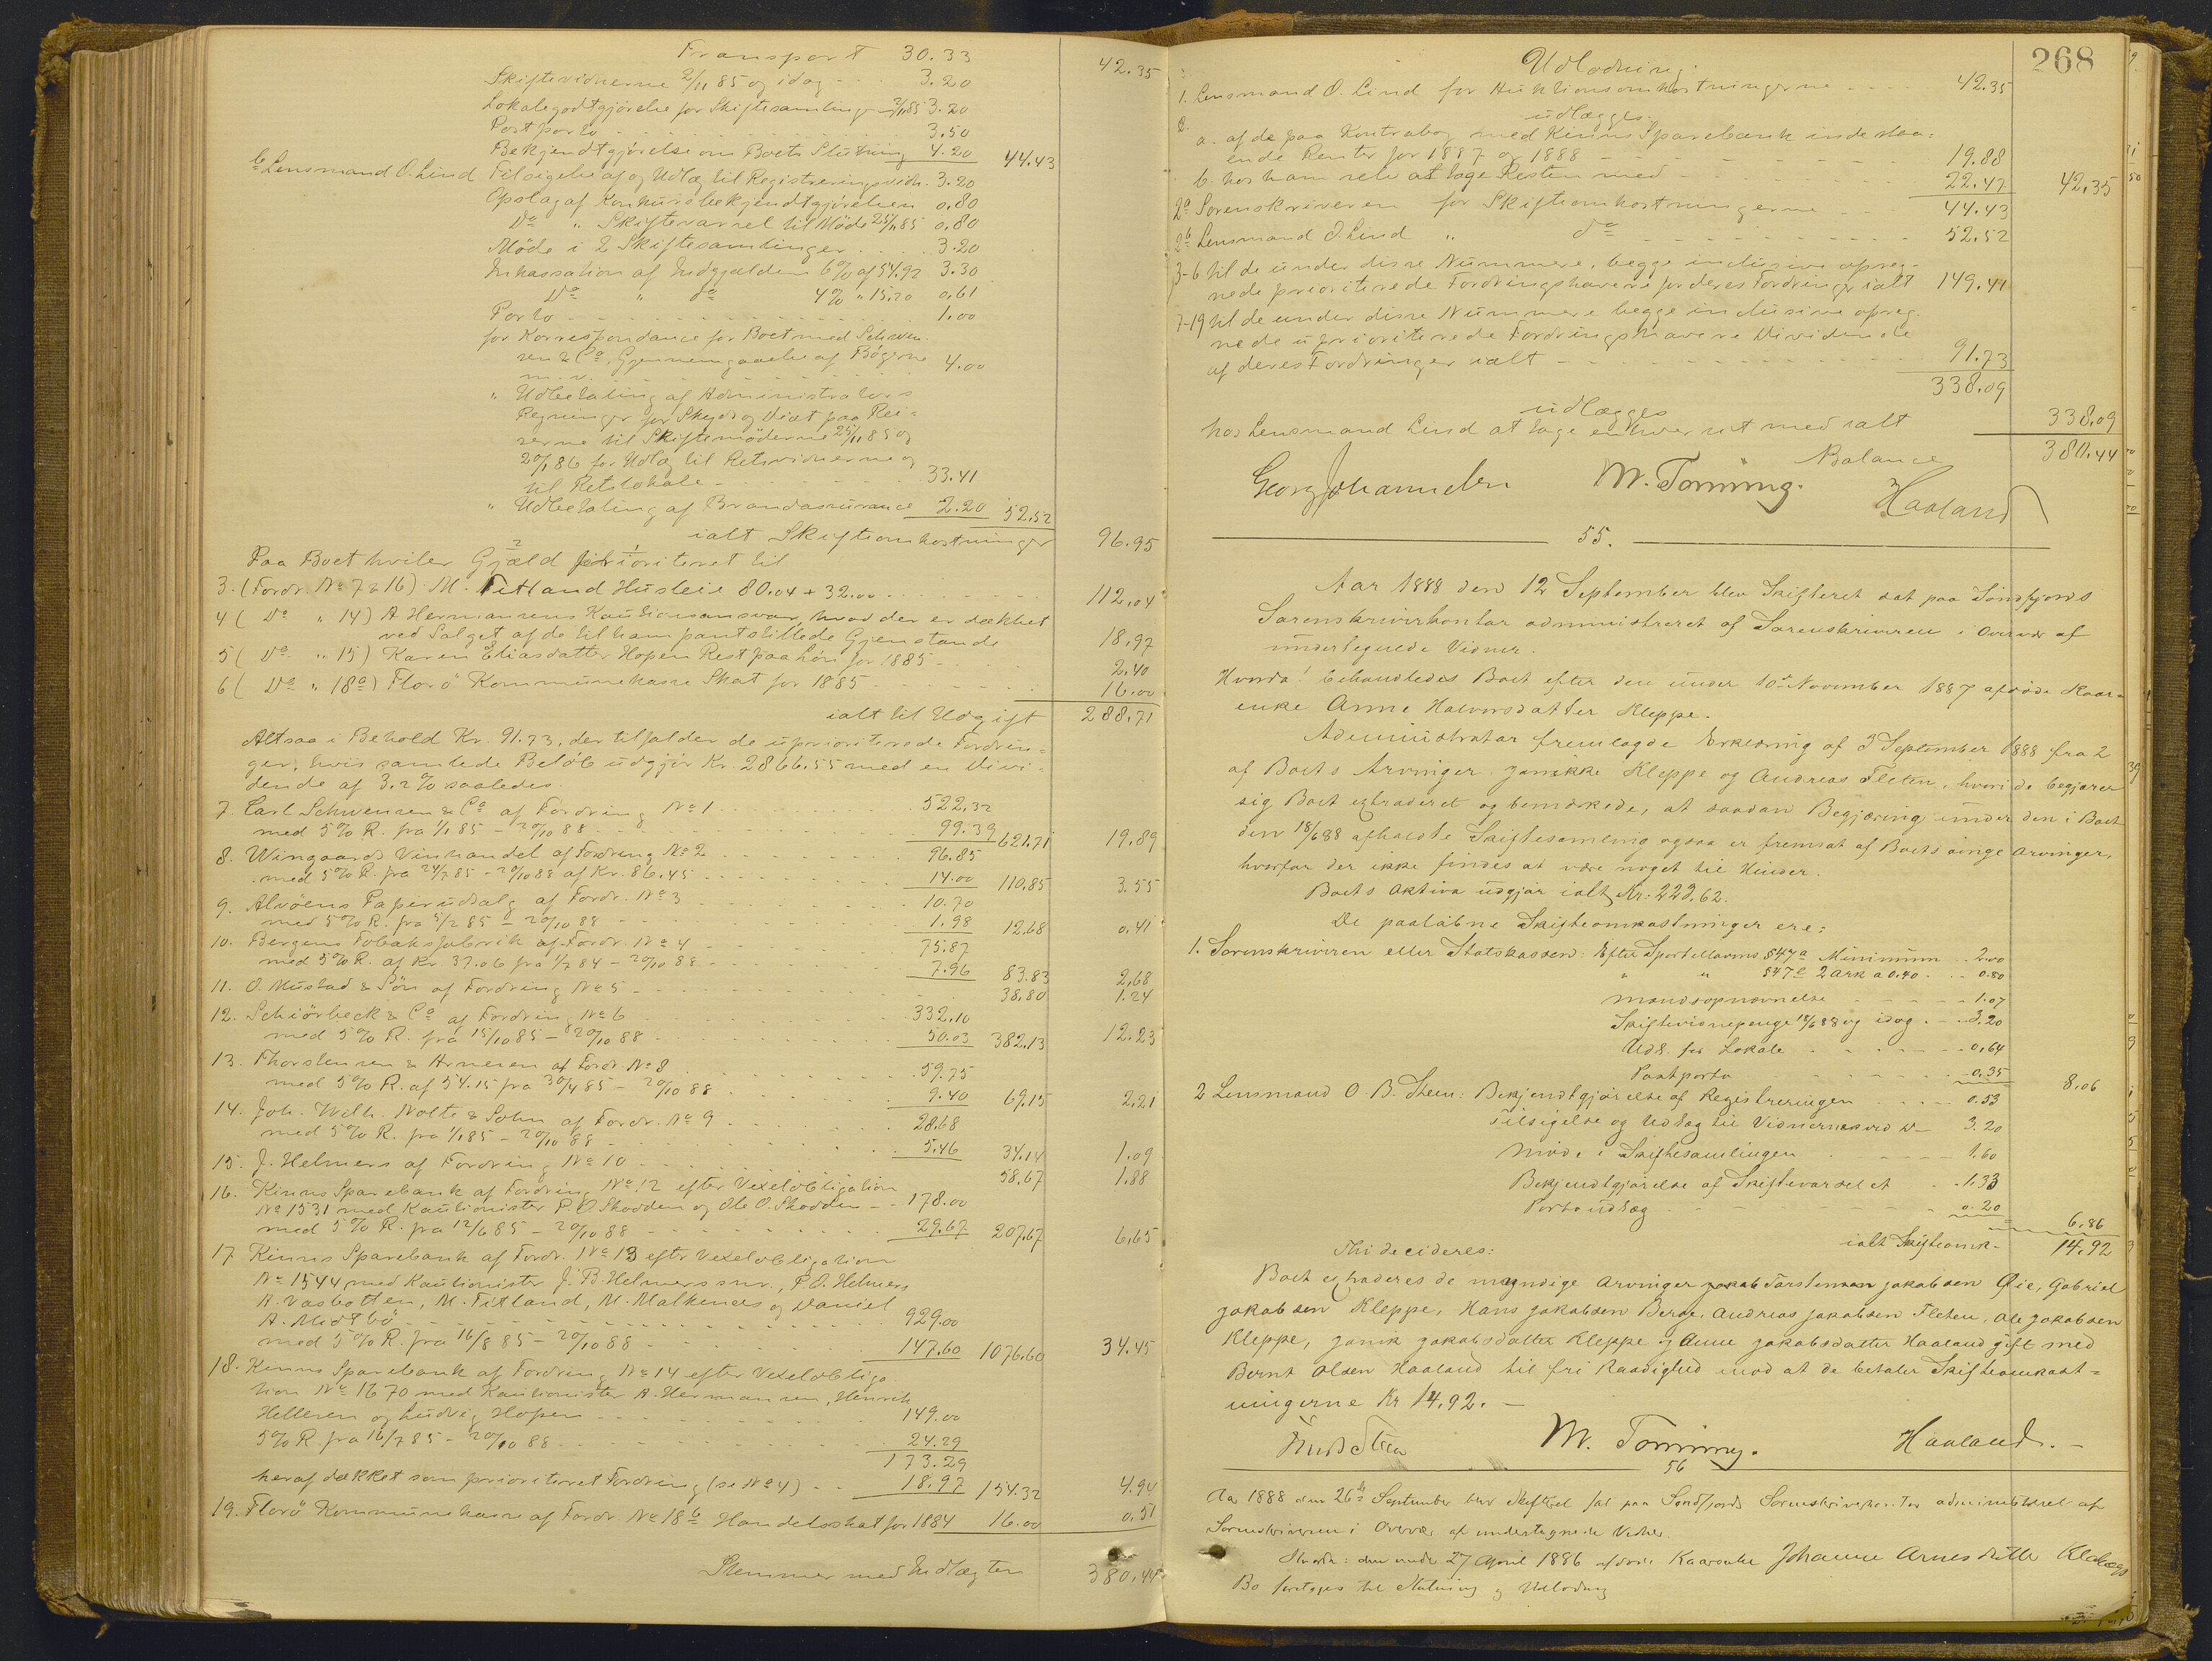 Transport 30.33 42.35
Skiftevidnerne 2/11 85 og idag 3.20
Lokalegodtgjørelse for Skiftesamlinger 2/11 85 3.20
Postporto 3.50
Bekjendtgjørelse om Boets Slutning 4.20 44.43
b Lensmand O. Lind Tilsigelse af og Udlæg til Registreringsvidn. 3.20
Opslag af Konkursbekjendtgjørelsen 0.80
Do " Skiftevarsel til Møde 25/11 85 0.80
Møde i 2 Skiftesamlinger 3.20
Inkassation af Indgjælden 6% af 54.92 3.30
Do " do 4% " 15.20 0.61
Porto 1.00
for Korrespondance for Boet med Schwen-
sen & Co, Gjennemgaaelse af Bøgerne
m.v. 4.00
" Udbetaling af Administrators
Regninger for Skyds og Diæt paa Rei-
serne til Skiftemöderne 25/11 85 og
20/1 86 for Udlæg til Retsvidnerne og
til Retslokale 33.41
" Udbetaling af Brandassurance 2.20 52.52
ialt Skifteomkostninger 96.95
Paa Boet hviler Gjæld prioriteret til
3. (Fordr. No 7 & 16) M. Titland Husleie 80.04 + 32.00 112.04
4 ( Do " 14) A Hermansens Kautionsansvar, hvad der er dækket
ved Salget af de til ham pantstillede Gjenstande 18.97
5 ( Do " 15) Karen Eliasdatter Hopen Rest paa Løn for 1885 2.40
6 ( Do " 18a) Florö Kommunekasse Skat for 1885 16.00
ialt til Udgift 288.71
Altsaa i Behold Kr. 91.73, der tilfalder de uprioriterede Fordrin-
ger, hvis samlede Beløb udgjør Kr. 2866.55 med en Divi-
dende af 3.2% saaledes
7. Carl Schwensen & Co af Fordring No 1 522.32
med 5% R. fra 1/1 85 - 20/10 88 99.39 621.71 19.89
8. Wingaards Vinhandel af Fordring No 2 96.85
med 5% R. fra 24/7 85 - 20/10 88 af Kr. 86.45 14.00 110.85 3.55
9. Alvöens Papirudsalg af Fordr. No 3 10.70
med 5% R. fra 5/2 85 - 20/10 88 1.98 12.68 0.41
10. Bergens Tobaksfabrik af Fordr. No 4 75.87
med 5% R. af Kr 37.06 fra 1/7 84 - 20/10 88 7.96 83.83 2.68
11. O. Mustad & Søn af Fordring No 5 38.80 1.24
12. Schiörbeck & Co af Fordring No 6 332.10
med 5% R. fra 15/10 85 - 20/10 88 50.03 382.13 12.23
13. Thorstensen & Arnesen af Fordr. No 8 59.75
med 5% R. af 54.15 fra 30/4 85 - 20/10 88 9.40 69.15 2.21
14. Joh. Wilh. Nolte & Sohn af Fordr. No 9 28.68
med 5% R. fra 1/1 85 - 20/10 88 5.46 34.14 1.09
15. J. Helmers af Fordring No 10 58.67 1.88
16. Kinns Sparebank af Fordring No 12 efter Vexelobligation
No 1531 med Kautionister P. O. Skodden og Ole O. Skodden 178.00
med 5% R. fra 12/6 85 - 20/10 88 29.67 207.67 6.65
17 Kinns Sparebank af Fordr. No 13 efter Vexelobligation
No 1544 med Kautionister J. B. Helmers snr., P. E. Helmers
A. Vasbotten, M. Titland, M. Malkenes og Daniel
A. Midtbö 929.00
med 5% R. fra 16/8 85 - 20/10 88 147.60 1076.60 34.45
18. Kinns Sparebank af Fordring No 14 efter Vexelobliga-
tion No 1670 med Kautionister A. Hermansen, Henrik
Hellesen og Ludvig Hopen 149.00
5% R. fra 16/7 85 - 20/10 88 24.29
173.29
heraf dækket som prioriteret Fordring (se No 4) 18.97 154.32 4.94
19. Florö Kommunekasse af Fordr. No 18b Handelsskat for 1884 16.00 0.51
Stemmer med Indtægten 380.44
268
Udlodning.
1. Lensmand O. Lind for Auktionsomkostningerne 42.35
udlægges.
a. af de paa Kontrabog med Kinns Sparebank indestaa-
ende Renter for 1887 og 1888 19.88
b. hos ham selv at tage Resten med 22.47 42.35
2a Sorenskriveren for Skifteomkostningerne 44.43
2b Lensmand O. Lind " do 52.52
3-6 til de under disse Nummere, begge inclusive opreg-
nede prioriterede Fordringshavere for deres Fordringer ialt 149.41
7-19 til de under disse Nummere begge inclusive opreg-
nede uprioriterede Fordringshavere Dividende
af deres Fordringer ialt 91.73
338.09
udlægges
hos Lensmand Lind at tage enhver sit med ialt 338.09
Balance 380.44
Georg Johannesen M. Tonning. Haaland
55.
Aar 1888 den 12 September blev Skifteret sat paa Söndfjords
Sorenskriverkontor administreret af Sorenskriveren i Overvær af
undertegnede Vidner.
Hvorda! behandledes Boet efter den under 10de November 1887 afdøde Kaar-
enke Anne Halvorsdatter Kleppe.
Administrator fremlagde Erklæring af 3 September 1888 fra 2
af Boets Arvinger Jannikke Kleppe og Andreas Fleten, hvori de begjærer
sig Boet extraderet og bemærkede, at saadan Begjæring under den i Boet
den 18/6 88 afholdte Skiftesamling ogsaa er fremsat af Boets øvrige Arvinger,
hvorfor der ikke findes at være noget til Hinder.
Boets Aktiva udgjør ialt Kr. 229.62.
De paaløbne Skifteomkostninger ere:
1. Sorenskriveren eller Statskassen: Efter Sportellovens §47a Minimum 2.00
" " §47e 2 Ark a 0.40 0.80
Mandsopnævnelse 1.07
Skiftevidnepenge 18/6 88 og idag 3.20
Udl. for Lokale 0.64
Postporto 0.35 8.06
2 Lensmand O. B. Steen: Bekjendtgjørelse af Registreringen 0.53
Tilsigelse og Udlæg til Vidnerne ved Do 3.20
Møde i Skiftesamlingen 1.60
Bekjendtgjørelse af Skiftevarselet 1.33
Portoudlæg 0.20 6.86
ialt Skifteomk. 14.92
Thi decideres:
Boet extraderes de myndige Arvinger Torstensen Jakobsen Øie, Gabriel
Jakobsen Kleppe, Hans Jakobsen Berge, Andreas Jakobsen Fleten, Ole Jakobsen
Kleppe, Janik Jakobsdatter Kleppe og Anne Jakobsdatter Haaland gift med
Bernt Olsen Haaland til fri Raadighed mod at de betaler Skifteomkost-
ningerne Kr 14.92.
M. Tonning. Haaland.
56
Aar 1888 den 26de September blev Skifteret sat paa Søndfjords Sorenskriverkontor administreret af
Sorenskriveren i Overvær af undertegnede Vidner.
Hvorda: den under 27 April 1886 afdøde Kaarenke Johanne Arnesdatter
Bo foretages til Slutning og Udlodning